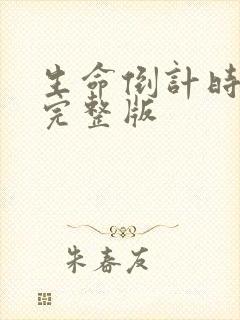 生命倒計時
完整版
朱春友